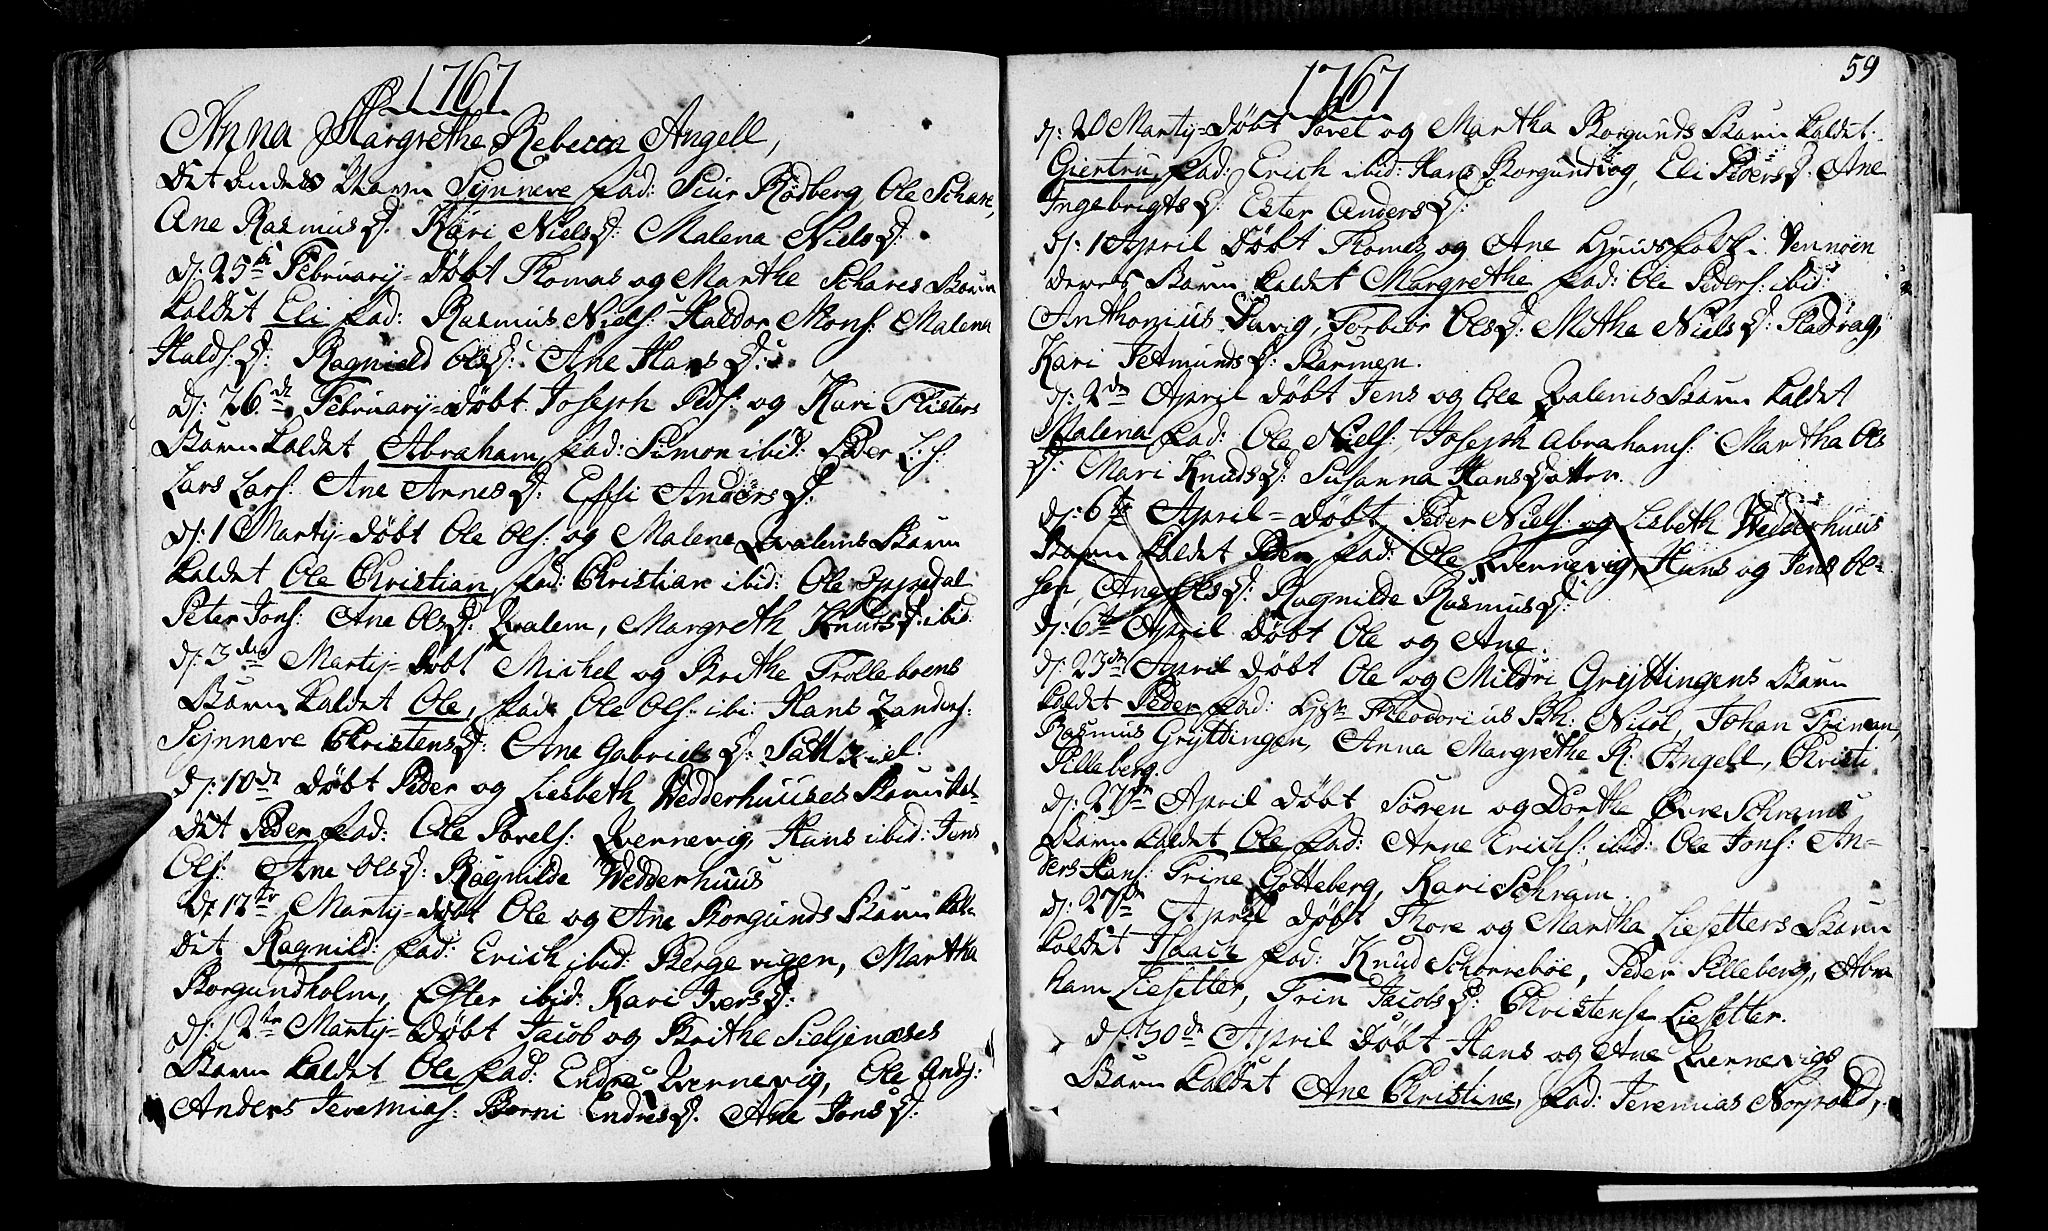 1767
Anna Margrethe Rebecca Angell,
Det andets Barn Synneve fad: Siur Rødberg, Ole Schare,
Ane Rasmus D. Kari Niels D: Malena Niels D:
D: 25de February Døbt Thomas og Marthe Schares Barn
kaldet Eli fad: Rasmus Niels: Haldor Mons: Malena
Halds: D: Ragnield Ols D: Ane Hans D:
D: 26de February Døbt Joseph Peds: og Kari Flisters
Barn kaldet Abraham, fad: Simon ibid: Peder L:s:
Lars Lars: Ane Arnes D: Effi Anders D:
D: 1 Martij Døbt Ole Ols: og Malene Qvalems Barn
kaldet Ole Christian, fad: Christian ibid: Ole
Peter Jons: Ane Ols D: Qvalem, Margreth Knuds D: ibid
D: 3de Martij Døbt Michel og Brithe Trolleboens
Barn kaldet Ole, fad: Ole Ols: ibi: Hans Zanders:
Synneve Christens D: Ane Gabriels D:
D: 10de Døbt Peder og Liesbeth Wedderhuuses Barn kal-
det Peder fad: Ole Povels: Qvernevig, Hans ibid: Jens
Ols: Ane Ols D: Ragnilde Wedderhuus
D: 12te Martij døbt Ole og Ane Borgunds Barn kal-
det Ragnild: fad: Erich ibid: Berge vigen, Martha
Borgundholm, Ester ibid: Kari Ivers D:
D: 12te Martij Døbt Jacob og Brithe Sieljenæses
Barn kaldet Ole fad: Endre Qvernevig, Ole Ands:
Anders Jeremias: Borni Endres D. Ane Jons D:
1767
59
D: 20 Martij Døbt Povel og Martha Borgunds Barn kaldet
Giertru, fad: Erich ibid: Hans Borgundvog, Eli Peders D. Ane
Ingebrigts D: Ester Anders D:
D: 1 April Døbt Thomes og Ane Huusfolk i Vennøen
deres Barn kaldet Margrethe fad: Ole Peders: ibid
Anthonius Davig, Torbiør Ols D: Mithe Niels D: Fladvag,
Kari Jetmunds D: Barmen.
D: 2de April døbt Jens og Ole Qvalems Barn kaldet
Malena fad: Ole Niels:, Joseph Abrahams: Martha Ols
D: Mari Knuds D: Susanna Hans Datter.
D: 6te April Døbt Peder Niels: og Lisbeth Wedderhuus
Barn kaldet Peder, fad: Ole Qvernevig, Hans og Jens Ol-
sen, Ane Ols D: Ragnilde Rasmus D:
D: 6te April Døbt Ole og Ane.
D: 23de April Døbt Ole og Mildri Gryttingens Barn
kaldet Peder fad: Theodorius Bh: Nicol, Johan
Rasmus Gryttingen, Anna Margrethe R: Angell, Christi
Pilleberg.
D: 27de April Døbt Søren og Dorthe Øvre Schrams
Barn kaldet Ole fad: Arne Erichs: ibid: Ole Jons: An-
ders Hans: Trine Gotteberg, Kari Schram.
D: 27de April Døbt Thore og Martha Liesetters Barn
kaldet Isaach fad: Knud Schorrebøe, Peder Pilleberg, Abra
ham Liesetter, Trin Jacobs D: Christense Liesetter.
D: 30de April Døbt Hans og Ane Qvernevigs
Barn kaldet Ane Christine, fad: Jeremias Norvold,